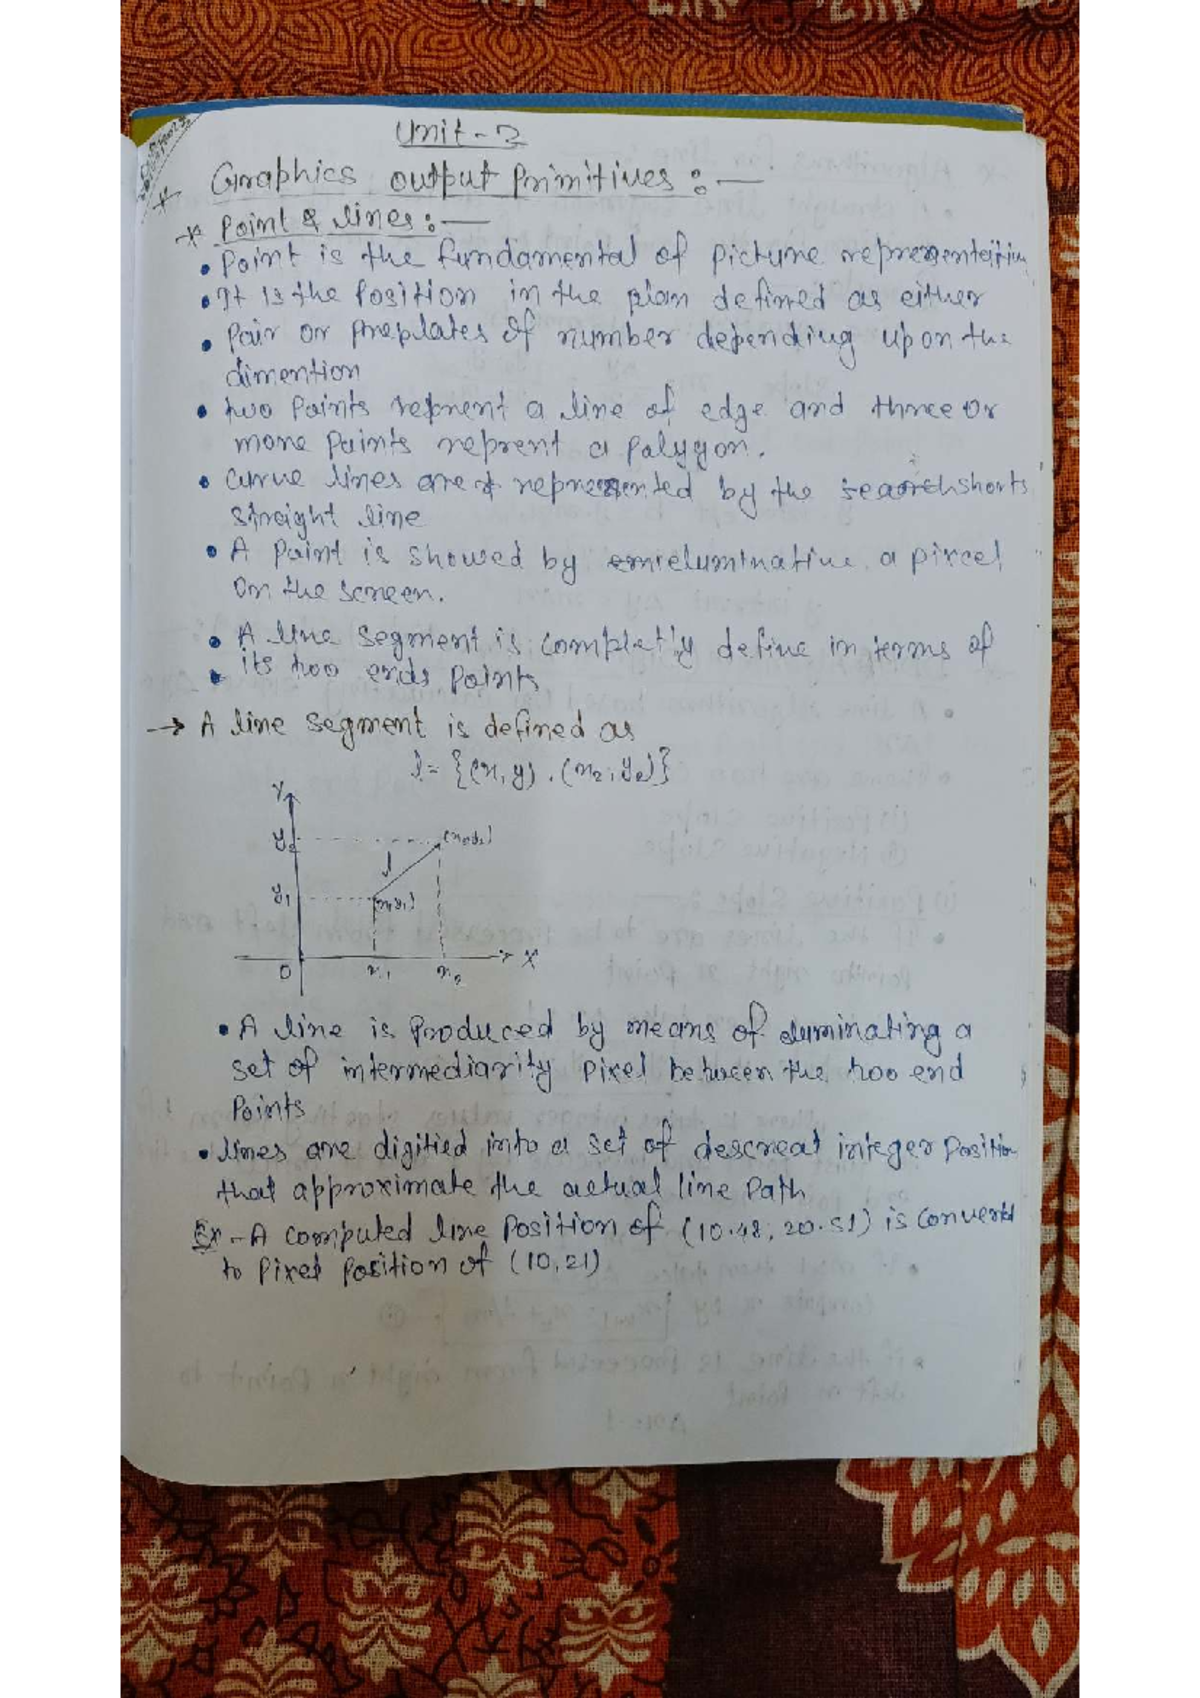 Unit - 2
* Graphics output Primitives :—
* Point & lines :—
• Point is the fundamental of picture representation
• It is the Position in the plan defined as either
• Pair or of number depending upon the
dimention
• two Points reprent a line of edge and three or
more Points reprent a Polygon.
• Curve lines are represented by the shorts
straight line
• A Point is showed by a pixcel
on the screen.
• A line segment is completly define in terms of
• its two ends Points
→ A line segment is defined as
l = {(x, y) . (x2, y2)}
Y
y2 (x2,y2)
l
y1 (x1,y1)
O x1 x2 X
• A line is Produced by means of eluminating a
set of intermediarity Pixel between the two end
Points
• lines are digitied into a set of descreat integer Position
that approximate the actual line Path
Ex - A computed line Position of (10.48, 20.51) is converted
to Pixel Position of (10,21)